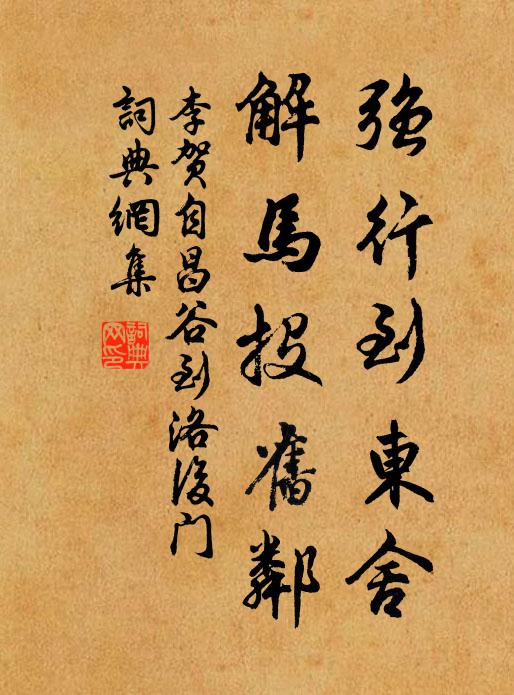 強行到東舍
解馬投舊鄰
李賀自昌谷到洛後门
詞典網集
詞典網印